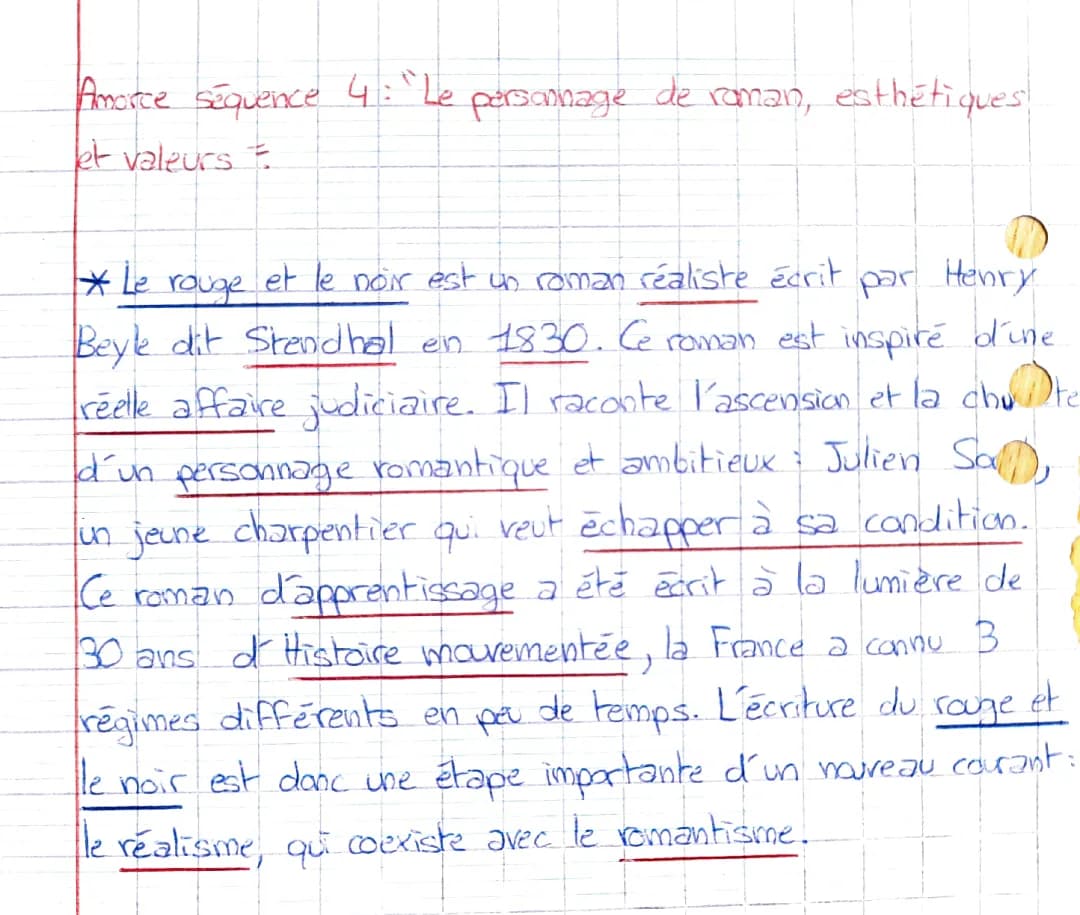 Amorce séquence 4 : "Le personnage de roman, esthétiques
et valeurs".
* Le rouge et le noir est un roman réaliste écrit par Henry
Beyle dit Stendhal en 1830. Ce roman est inspiré d'une
réelle affaire judiciaire. Il raconte l'ascension et la chute
d'un personnage romantique et ambitieux : Julien
un jeune charpentier qui veut échapper à sa condition.
Ce roman d'apprentissage a été écrit à la lumière de
30 ans d'Histoire mouvementée, la France a connu 3
régimes différents en peu de temps. L'écriture du rouge et
le noir est donc une étape importante d'un nouveau courant :
le réalisme, qui coexiste avec le romantisme.